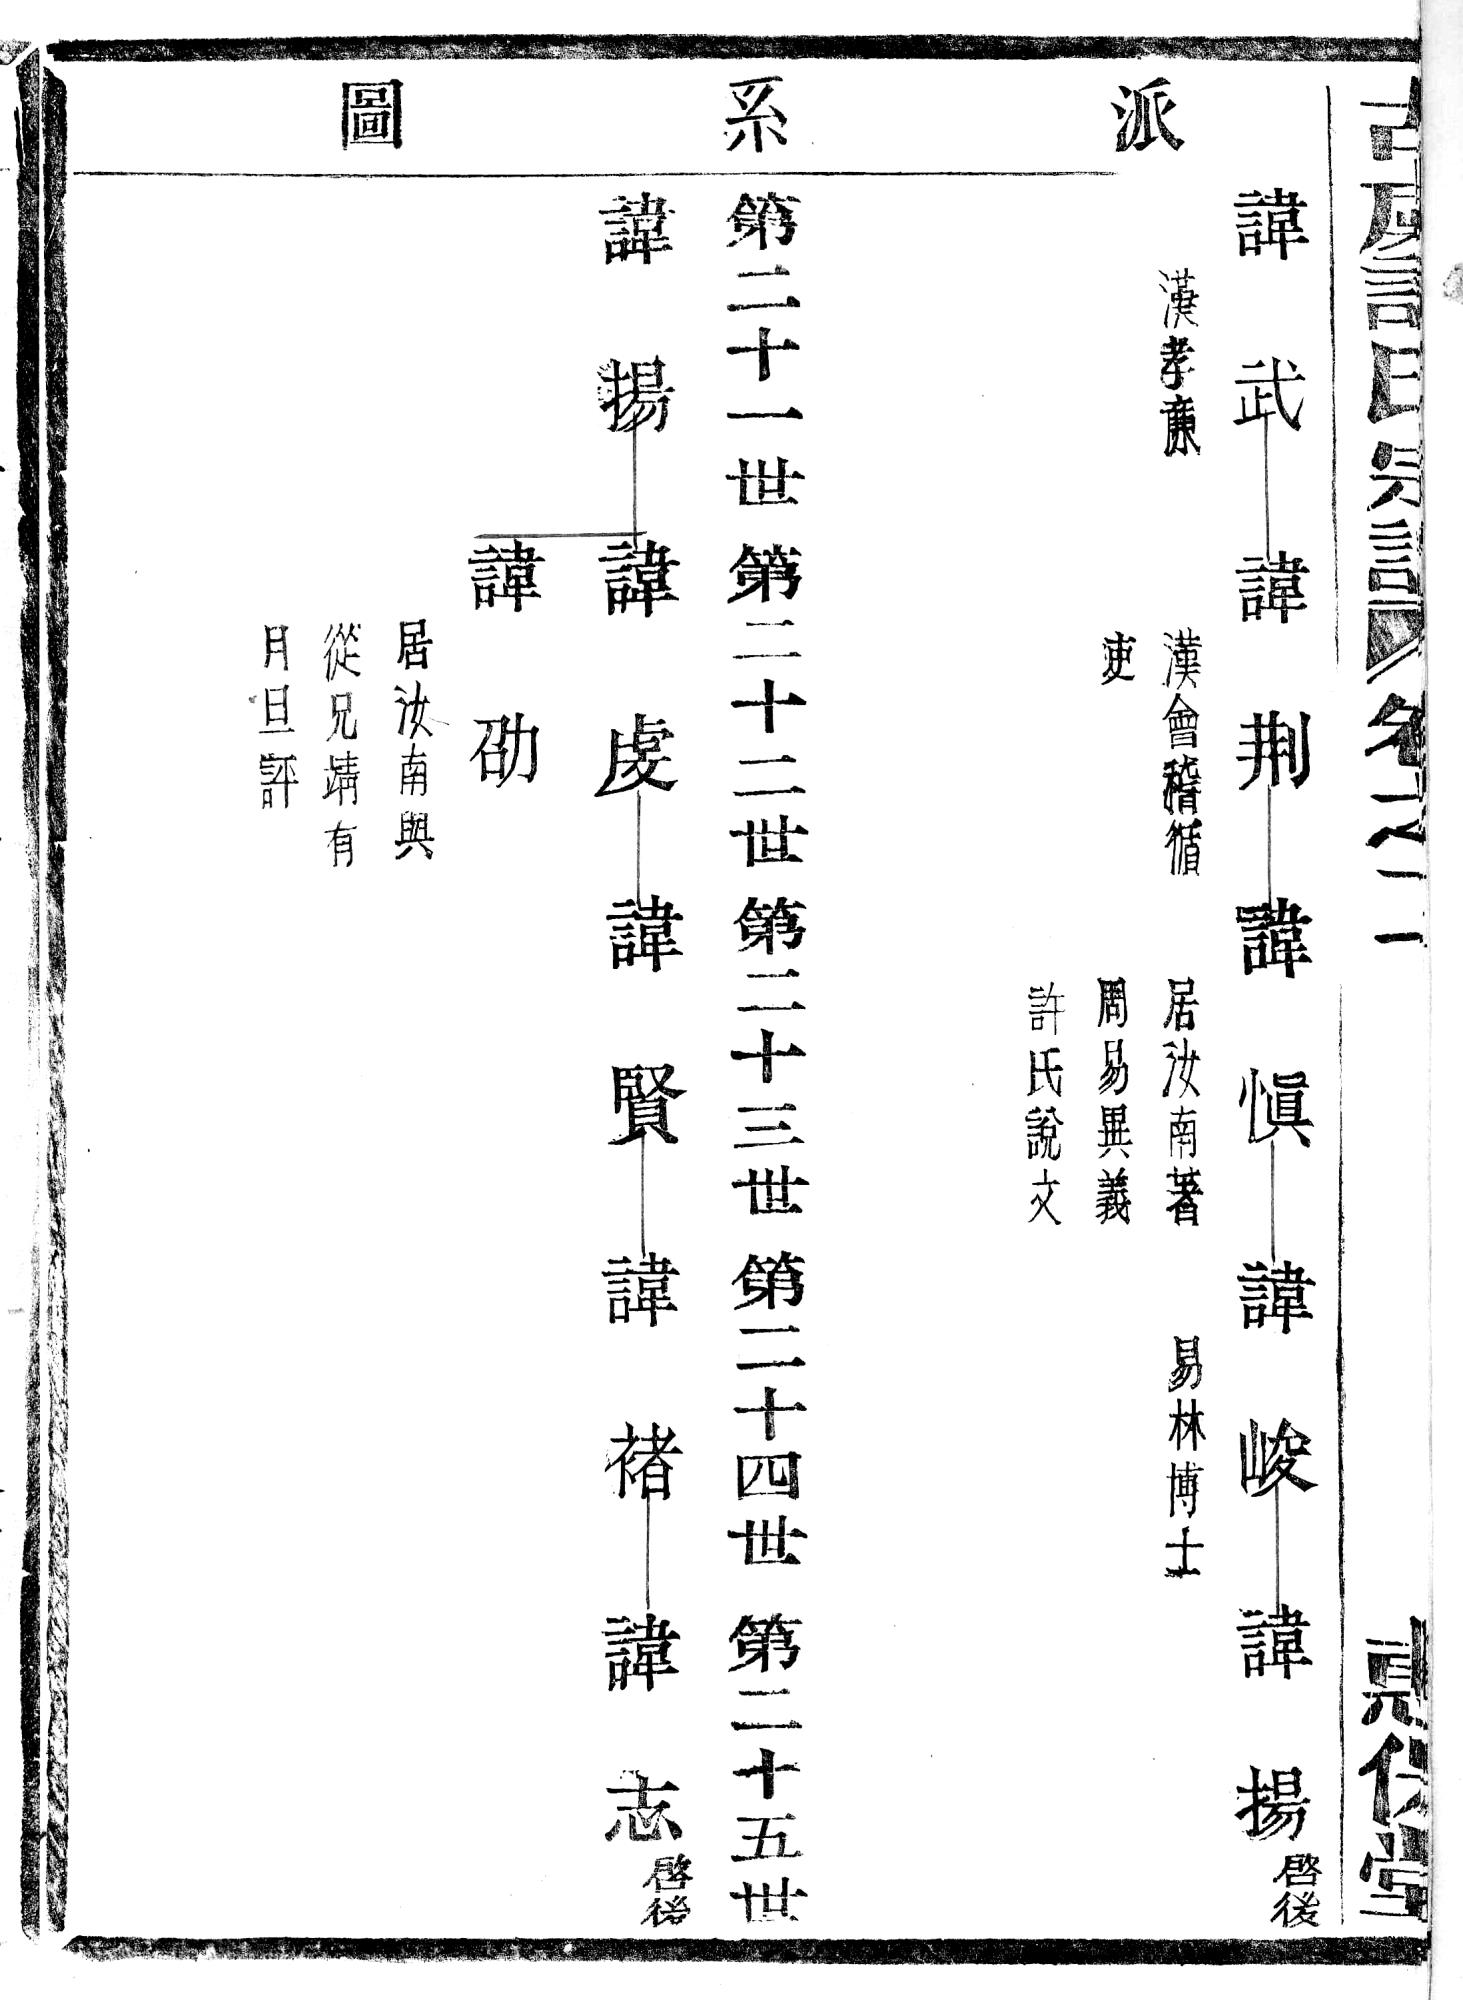 許氏宗譜
卷之二
堂
派系圖
諱武
漢孝廉
諱荆
漢會稽循
吏
諱慎
居汝南著
周易異義
許氏說文
諱峻
易林博士
諱揚
啓後
第二十一世
第二十二世
第二十三世
第二十四世
第二十五世
諱揚
諱虔
諱賢
諱褚
諱志
啓後
諱劭
居汝南與
從兄靖有
月旦評